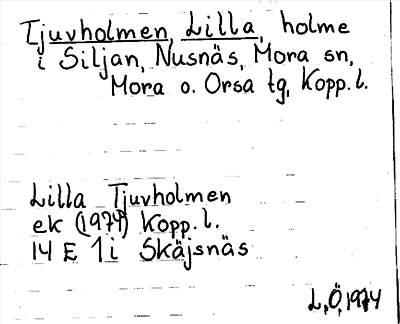 Tjuvholmen, Lilla, holme
i Siljan, Nusnäs, Mora sn,
Mora o. Orsa tg, Kopp. l.
Lilla Tjuvholmen
ek (1974) Kopp. l.
14 E 1 i Skäjsnäs
L.Ö. 1974